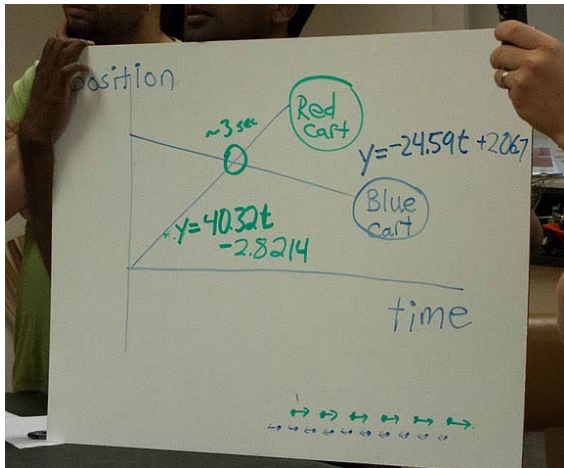 position
Red
cart
~3 sec
y=-24.59t+206.7
Blue
cart
y=40.32t
-2.8214
time